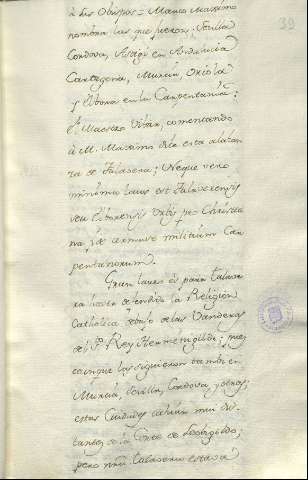 39
à los Obispos = Marco Maximo
nombra las que fueron; Sevilla
Cordova, Astigi en Andalucia
Cartagena, Murcia, Oriola
y Elbora en la Carpentania;
el Maestro Vibar, comentando
à M. Maximo dèa esta alaban
za de Talavera; Neque vero
minima laus est Talaverensis
seu Elborensis Urbis pro Christia
na fide armare militiam Car
pentanorum.
Gran lauro es para Talave
ra haver defendido la Religion
Catholica debajo de las Vanderas
del Rey Hermenegildo; pues
aunque las siguieron tambien
Murcia, Sevilla, Cordova y otras;
estas Ciudades cahian mui dis-
tantes de la Corte de Leovigildo;
pero nra Talavera estava